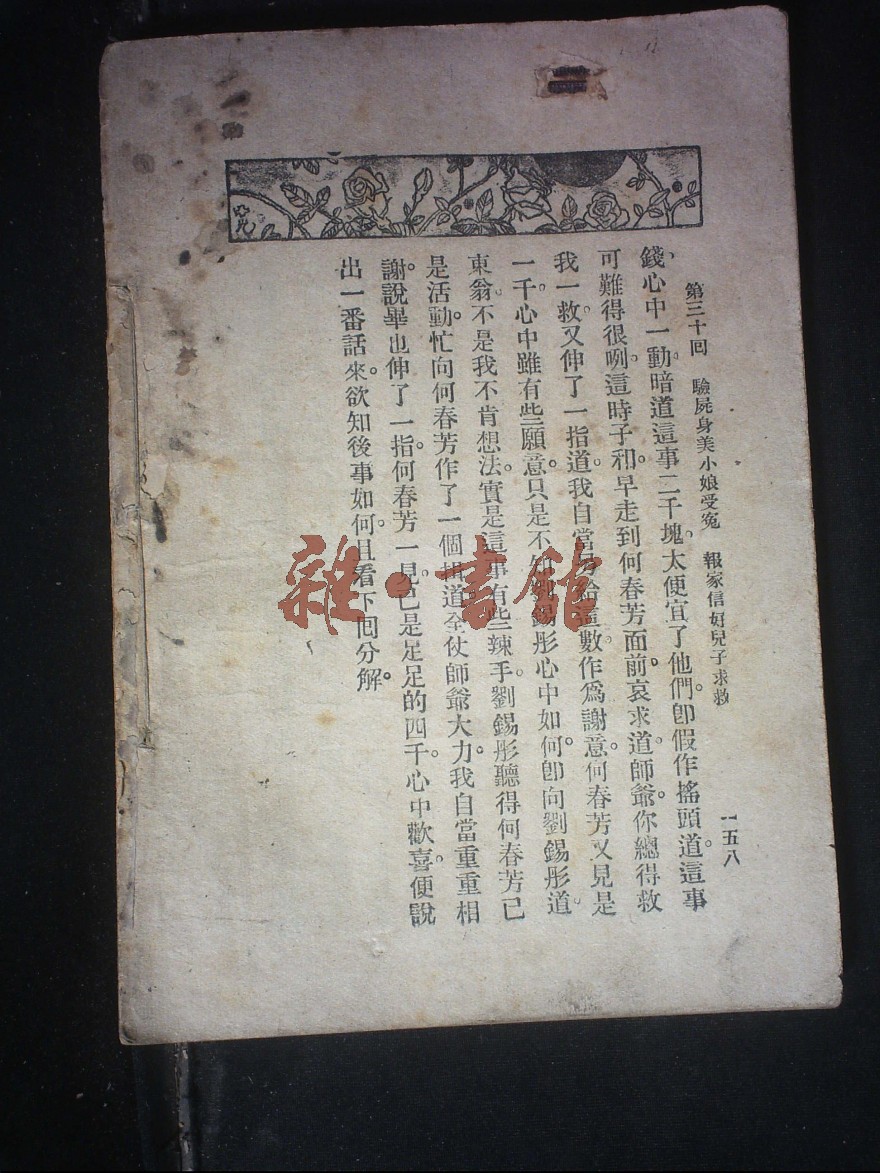 第三十回　驗屍身美小娘受冤　報家信好兒子求救
一五八
錢。心中一動。暗道這事二千塊。太便宜了他們。卽假作搖頭道。這事
可難得很咧。這時子和早走到何春芳面前。哀求道。師爺。你總得救
我一救。又伸了一指道。我自當另給這數。作爲謝意。何春芳又見是
一千。心中雖有些願意。只是不知劉錫彤心中如何。卽向劉錫彤道。
東翁。不是我不肯想法。實是這事有些辣手。劉錫彤聽得何春芳已
是活動。忙向何春芳作了一個揖道。全仗師爺大力。我自當重重相
謝。說畢。也伸了一指。何春芳一見。已是足足的四千。心中歡喜。便說
出一番話來。欲知後事如何。且看下回分解。
雜·書館